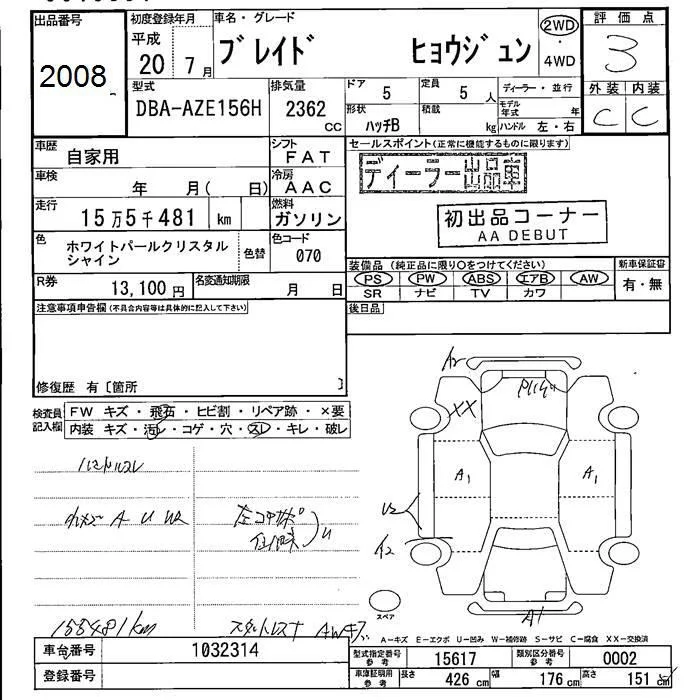 出品番号
2008
初度登録年月
平成
20 7月
車名・グレード
ブレイド ヒョウジュン
2WD
・
4WD
評価点
3
外装 内装
C C
型式
DBA-AZE156H
排気量
2362
cc
ドア
5
定員
5 人
ディーラー・並行
形状
ハッチB
積載
kg
モデル年式 年
ハンドル 左・右
車歴
自家用
シフト
FAT
車検
年 月( 日)
冷房
AAC
走行
15万5千481 km
燃料
ガソリン
色
ホワイトパールクリスタル
シャイン
色替
色コード
070
R券
13,100円
名変通知期限
月 日
セールスポイント(正常に機能するものに限ります)
ディーラー出品車
初出品コーナー
AA DEBUT
装備品 (純正品に限り○をつけてください)
新車保証書
PS PW ABS エアB AW
SR ナビ TV カワ
有・無
後日品
注意事項申告欄(不具合内容等は具体的に記入して下さい)
修復歴 有〔箇所 〕
検査員記入欄
FW キズ・飛石・ヒビ割・リペア跡・×要
内装 キズ・汚レ・コゲ・穴・スレ・キレ・破レ
A U W2
155481km
A2
XX
A1
A1
U2
A2
A1
スペア
A-キズ E-エクボ U-凹み W-補修跡 S-サビ C-腐食 XX-交換済
車台番号
1032314
登録番号
型式指定番号
参考
15617
類別区分番号
参考
0002
車庫証明用
参考
長さ
426 cm
幅
176 cm
高さ
151 cm